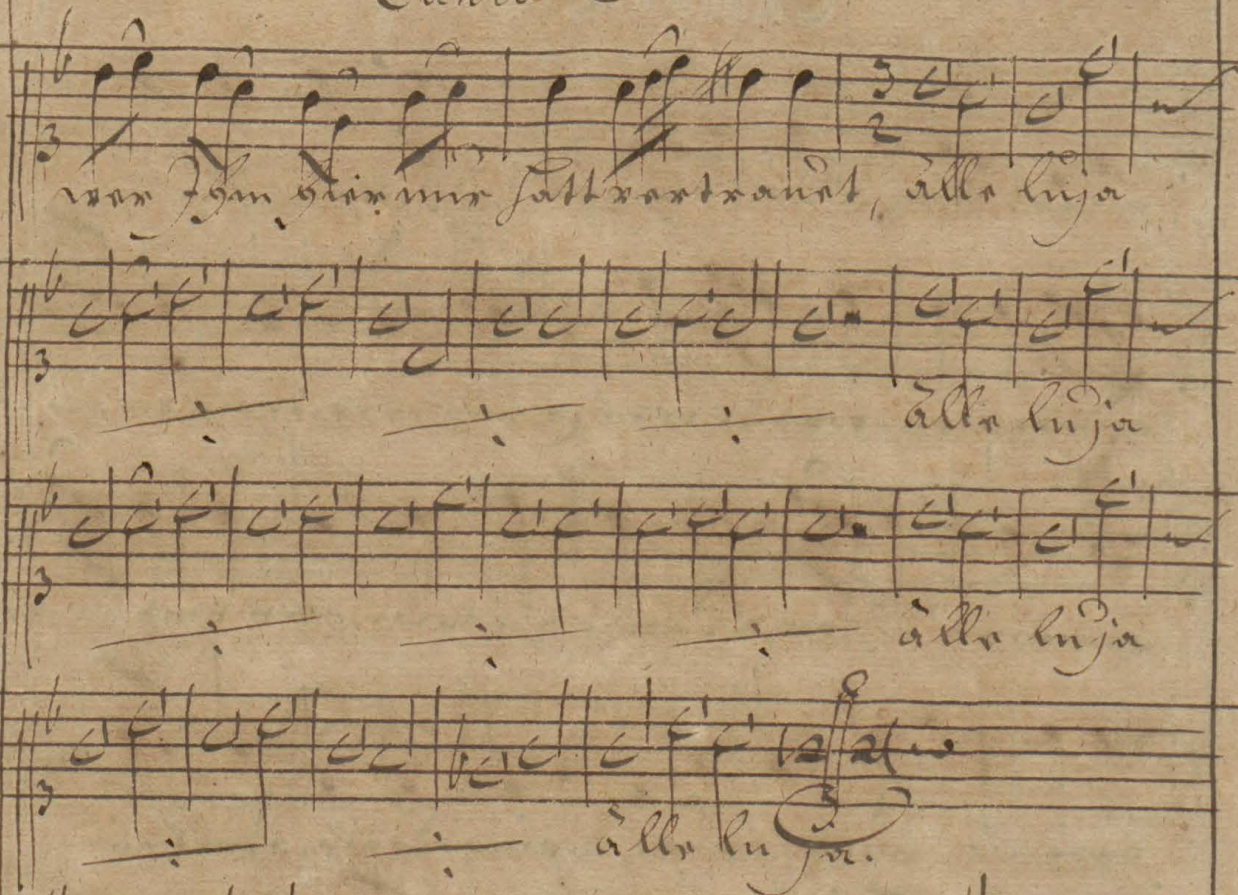 wer Ihm hier nur hatt vertrauet, alle luja
alle luja
alle luja
alle lu ja.